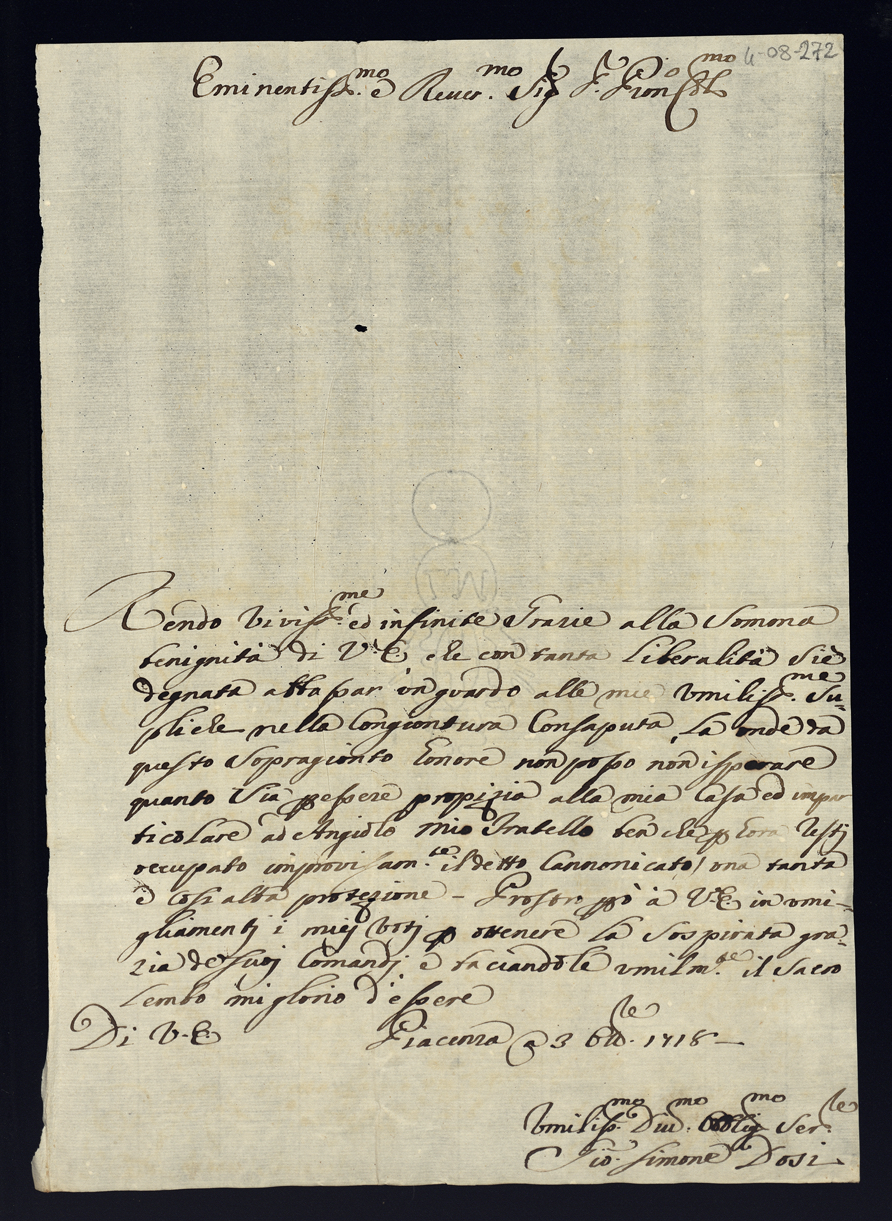 4-08-272
Eminentiss.mo e Reuer.mo Sig.r P.ron Col.mo
Rendo viviss.me ed infinite Grazie alla Somma
benignità di V.E che con tanta liberalità si è
degnata abbassar un guardo alle mie umiliss.me Su=
pliche nella Congiontura Consaputa, La onde da
questo Sopragionto honore non posso non isperare
quanto Sia p essere propizia alla mia Casa ed impar
ticolare ad Angiolo mio Fratello ben che p hora resti
occupato improvisam.te il detto Cannonicato / una tanta
e Così alta protezione - Prostro pò à V.E. in umi=
gliamenti i miei voti p ottenere La Sospirata gra=
zia de suoi Comandi, e baciandole umilm.te il Sacro
Lembo mi glorio d'essere
Di V.E Piacenza a 3 1718 -
Umiliss.mo Diu.mo Obblig.mo Ser.le
Gio. Simone Dosi